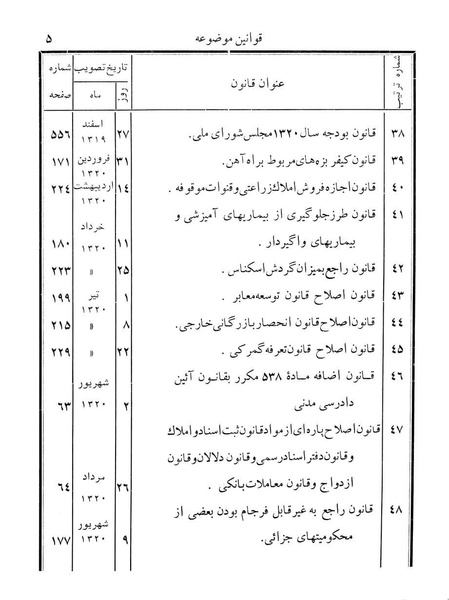 قوانین موضوعه ۵
شماره ترتیب عنوان قانون تاریخ تصویب روز ماه شماره صفحه
۳۸ قانون بودجه سال ۱۳۲۰ مجلس شورای ملی. ۲۷ اسفند ۱۳۱۹ ۵۵۶
۳۹ قانون کیفر بزه‌های مربوط براه آهن. ۳۱ فروردین ۱۳۲۰ ۱۷۱
۴۰ قانون اجازه فروش املاك زراعتی و قنوات موقوفه. ۱۴ اردیبهشت ۱۳۲۰ ۲۲۴
۴۱ قانون طرز جلوگیری از بیماریهای آمیزشی و
بیماریهای واگیردار. ۱۱ خرداد ۱۳۲۰ ۱۸۰
۴۲ قانون راجع بمیزان گردش اسکناس. ۲۵ » ۲۲۳
۴۳ قانون اصلاح قانون توسعه معابر. ۱ تیر ۱۳۲۰ ۱۹۹
۴۴ قانون اصلاح قانون انحصار بازرگانی خارجی. ۸ » ۲۱۵
۴۵ قانون اصلاح قانون تعرفه گمرکی. ۲۲ » ۲۲۹
۴۶ قانون اضافه مادهٔ ۵۳۸ مکرر بقانون آئین
دادرسی مدنی ۲ شهریور ۱۳۲۰ ۶۳
۴۷ قانون اصلاح پاره‌ای از مواد قانون ثبت اسناد و املاك
و قانون دفتر اسناد رسمی و قانون دلالان و قانون
ازدواج و قانون معاملات بانکی. ۲۶ مرداد ۱۳۲۰ ۶۴
۴۸ قانون راجع به غیر قابل فرجام بودن بعضی از
محکومیتهای جزائی. ۹ شهریور ۱۳۲۰ ۱۷۷